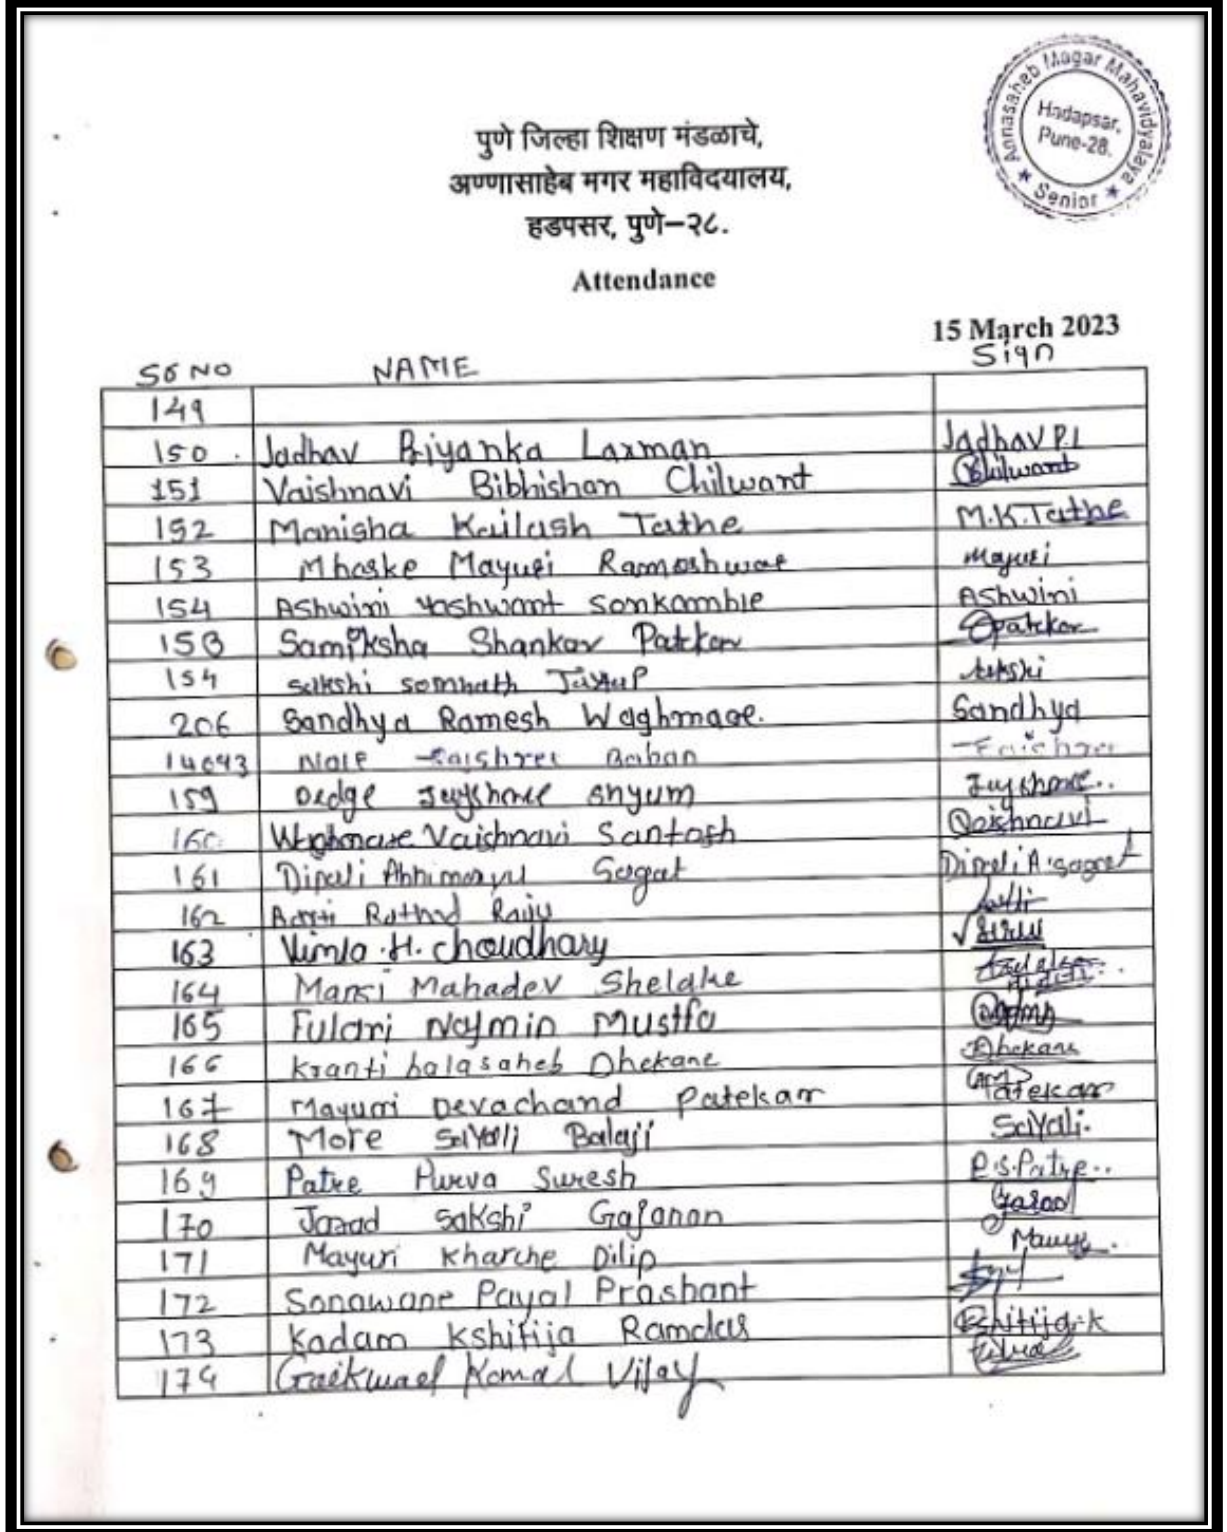 Annasaheb Magar Mahavidyalaya
Hadapsar,
Pune-28.
★ Senior ★
पुणे जिल्हा शिक्षण मंडळाचे,
अण्णासाहेब मगर महाविदयालय,
हडपसर, पुणे–२८.
Attendance
15 March 2023
Sr NO NAME Sign
149
150 Jadhav Priyanka Laxman Jadhav P.L
151 Vaishnavi Bibhishan Chilwant Chilwant
152 Manisha Kailash Tathe M.K.Tathe
153 Mhaske Mayuri Rameshwar Mayuri
154 Ashwini Yashwant Sonkamble Ashwini
Samiksha Shankar Patkar Patekar
154 Sakshi Somnath
206 Sandhya Ramesh Waghmare. Sandhya
14043 Nale Saishree Baban
159 Dedge Jayshree Shyam Jayshree..
160 Waghmare Vaishnavi Santosh Vaishnavi
161 Dipali Abhimanyu Sagat Dipali A.
162 Aarti Rathod Raiju
163 Vimla .H. Choudhary
164 Mansi Mahadev Shelake
165 Fulari Najmin Mustfa
166 Kranti balasaheb Dhekane Dhekane
167 Mayuri Devachand Patekar Patekar
168 More Sayali Balaji Sayali.
169 Patre Purva Suresh P.S.Patre..
170 Jarad Sakshi Gajanan
171 Mayuri Kharche Dilip
172 Sonawane Payal Prashant
173 Kadam Kshitija Ramdas
174 Gaikwad Komal Vijay